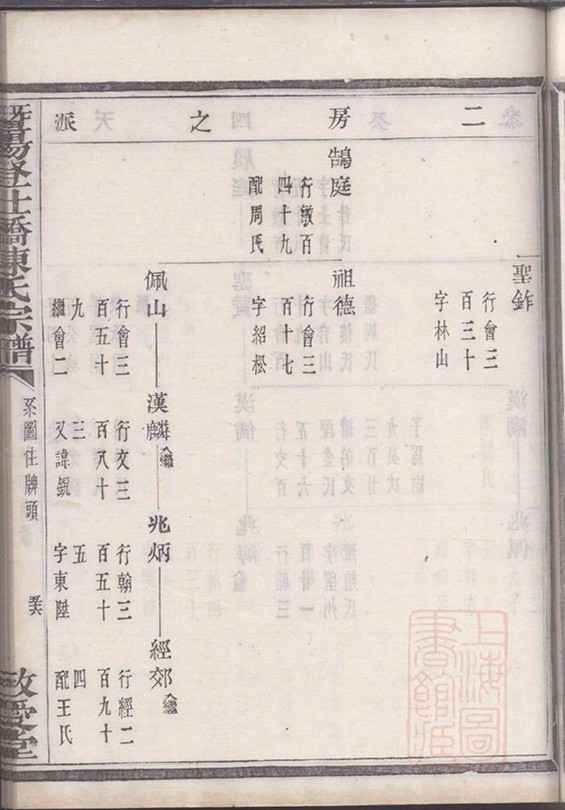 二房之派
聖銨
行會三
百三十
字林山
鵠庭
行敏百
四十九
配周氏
祖德
行會三
百十七
字紹松
佩山
行會三
百五十
九
繼會二
漢麟 入繼
行文三
百八十
三
又諱
兆炳
行翰三
百五十
五
字東陞
經郊 入繼
行經二
百九十
四
配王氏
暨陽墅仕橋陳氏宗譜
系圖住牌頭
敬愛堂
上海圖
書館藏